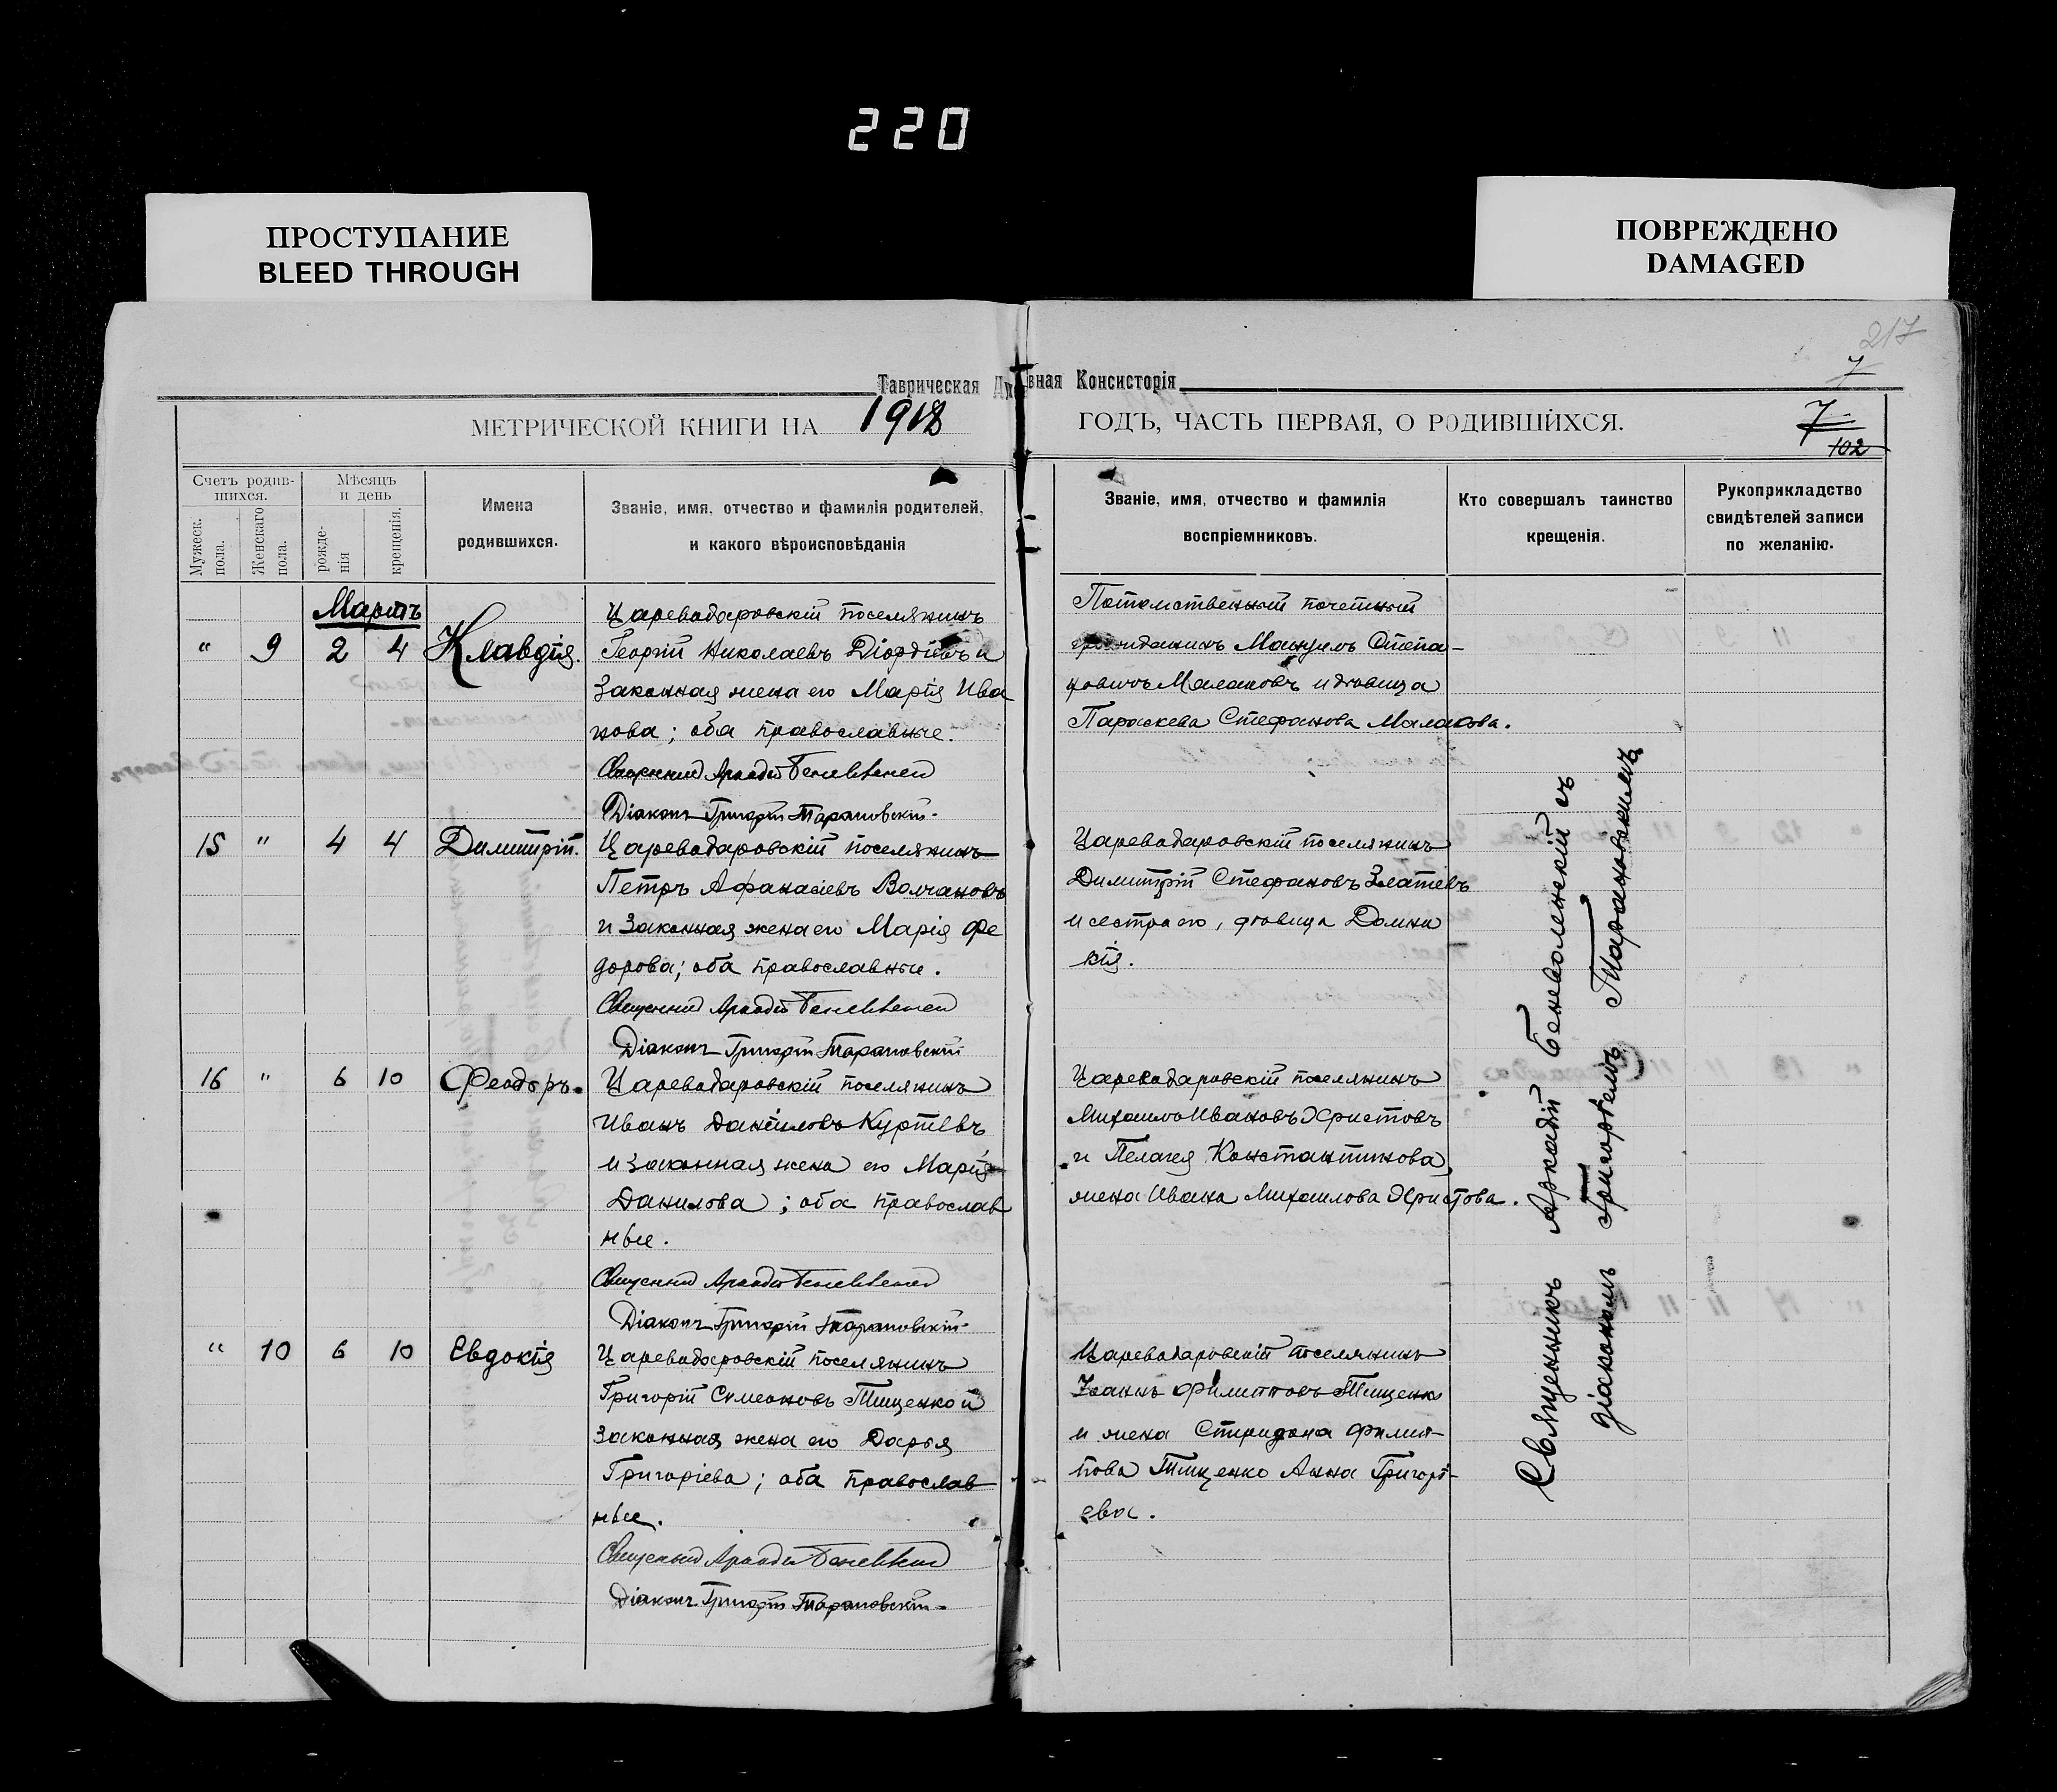 220
ПРОСТУПАНИЕ
BLEED THROUGH
ПОВРЕЖДЕНО
DAMAGED
217
7
Таврическая Духовная Консисторія
МЕТРИЧЕСКОЙ КНИГИ НА 1918 ГОДЪ, ЧАСТЬ ПЕРВАЯ, О РОДИВШИХСЯ.
7
102
Счетъ родившихся.
Мужеск. пола.
Женскаго пола.
Мѣсяцъ и день
рожденія
крещенія.
Имена
родившихся.
Званіе, имя, отчество и фамилія родителей,
и какого вѣроисповѣданія
Званіе, имя, отчество и фамилія
воспріемниковъ.
Кто совершалъ таинство
крещенія.
Рукоприкладство
свидѣтелей записи
по желанію.
Мартъ
" 9 2 4 Клавдія.
Цареводаровскій поселянинъ
Георгій Николаевъ Діордіевъ и
законная жена его Марія Ива
нова; оба православные.
Священникъ Аркадій Беневоленскій
Діаконъ Григорій Тарановскій.
Потомственный почетный
гражданинъ Мануилъ Степа-
новичъ Малаковъ и дѣвица
Параскева Стефанова Малакова.
15 " 4 4 Димитрій.
Цареводаровскій поселянинъ
Петръ Афанасіевъ Волчановъ
и законная жена его Марія Фе
дорова; оба православные.
Священникъ Аркадій Беневоленскій
Діаконъ Григорій Тарановскій
Цареводаровскій поселянинъ
Димитрій Стефановъ Златевъ
и сестра его, дѣвица Домни
кія.
16 " 6 10 Феодоръ.
Цареводаровскій поселянинъ
Иванъ Даніиловъ Куртевъ
и законная жена его Марія
Данилова; оба православ
ные.
Священникъ Аркадій Беневоленскій
Діаконъ Григорій Тарановскій
Цареводаровскій поселянинъ
Михаилъ Ивановъ Христовъ
и Пелагея Константинова,
жена Ивана Михаилова Христова.
" 10 6 10 Евдокія
Цареводаровскій поселянинъ
Григорій Симеоновъ Тищенко и
законная жена его Дарья
Григоріева; оба православ
ные.
Священникъ Аркадій Беневоленскій
Діаконъ Григорій Тарановскій.
Цареводаровскій поселянинъ
Іоаннъ Филипповъ Тищенко
и жена Спиридона Филип-
пова Тищенко Анна Григорі-
ева.
Священникъ Аркадій Беневоленскій съ
діакономъ Григоріемъ Тарановскимъ